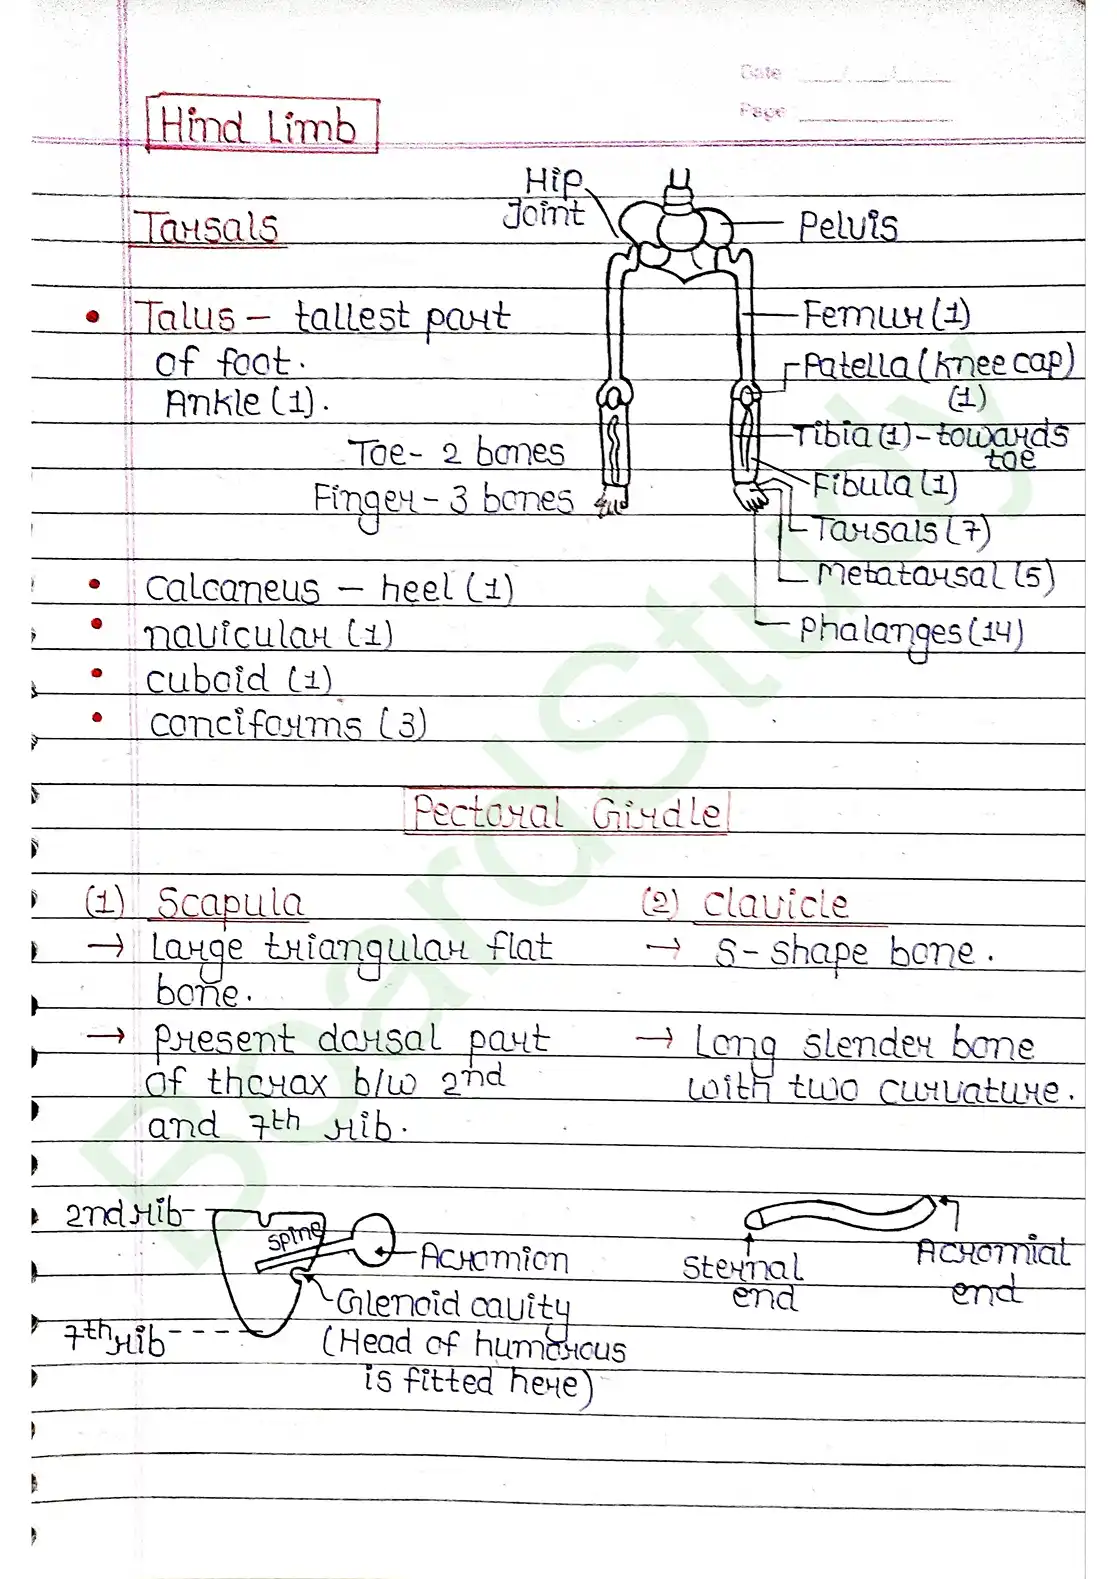 Date
Page
Hind Limb
Hip
Joint
Pelvis
Tarsals
• Talus – tallest part
of foot.
Ankle (1).
Femur (1)
Patella (knee cap)
(1)
Tibia (1) – towards
toe
Fibula (1)
Tarsals (7)
Metatarsal (5)
Phalanges (14)
Toe - 2 bones
Finger - 3 bones
• calcaneus – heel (1)
• navicular (1)
• cuboid (1)
• conciforms (3)
Pectoral Girdle
(1) Scapula
→ Large triangular flat
bone.
→ Present dorsal part
of thorax b/w 2nd
and 7th rib.
(2) Clavicle
→ S-shape bone.
→ Long slender bone
with two curvature.
2nd rib-
Spine
Acromion
Glenoid cavity
(Head of humorous
is fitted here)
7th rib
Sternal
end
Acromial
end
BoardStudy